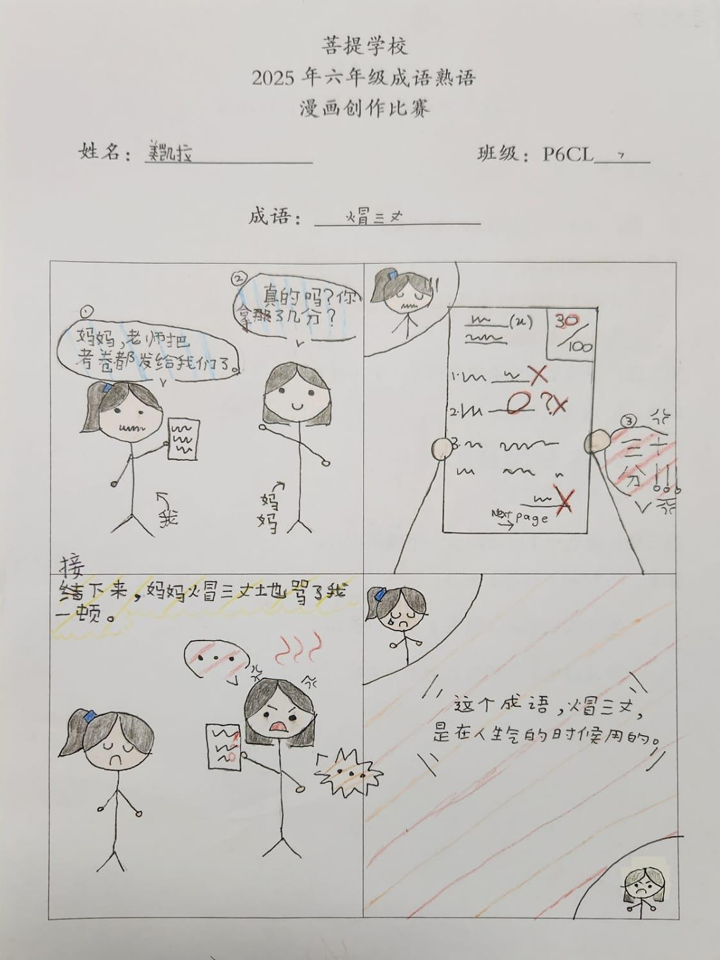 菩提学校
2025 年六年级成语熟语
漫画创作比赛
姓名：美凯拉
班级：P6CL 7
成语：火冒三丈
①
妈妈，老师把
考卷都发给我们了。
②
真的吗？你
拿了几分？
我
妈妈
(x)
30/100
1.
2.
?
3.
NEXT page
③
三十
分!!!
接
下来，妈妈火冒三丈地骂了我
一顿。
这个成语，火冒三丈，
是在人生气的时候用的。